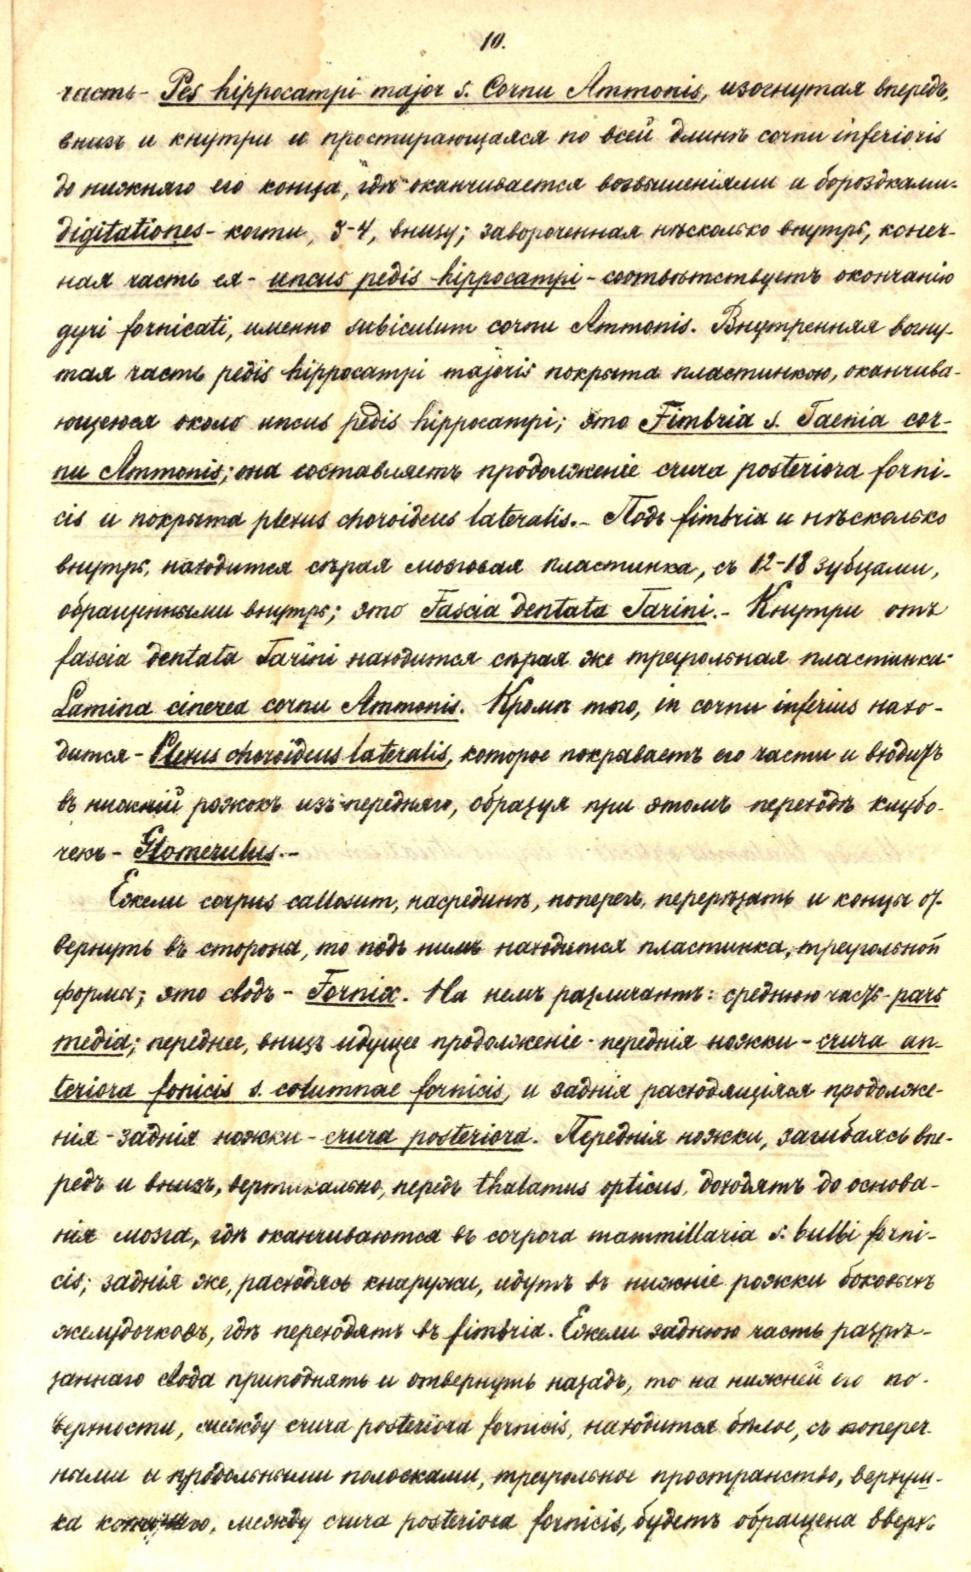 10.
часть - Pes hippocampi major s. Cornu Ammonis, изогнутая впередъ,
внизъ и кнутри и простирающаяся по всей длинѣ cornu inferioris
до нижняго его конца, гдѣ оканчивается возвышеніями и бороздками-
digitationes - когти, 3-4, внизу; завороченная нѣсколько внутрь, конеч-
ная часть ея - uncus pedis hippocampi - соотвѣтствуетъ окончанію
gyri fornicati, именно subiculum cornu Ammonis. Внутренняя вогну-
тая часть pedis hippocampi majoris покрыта пластинкою, оканчива-
ющеюся около uncus pedis hippocampi; это Fimbria s. Taenia cor-
nu Ammonis; она составляетъ продолженіе crura posteriora forni-
cis и покрыта plexus choroideus lateralis. - Подъ fimbria и нѣсколько
внутрь, находится сѣрая мозговая пластинка, съ 12-18 зубцами,
обращенными внутрь; это Fascia dentata Tarini. - Кнутри отъ
fascia dentata Tarini находится сѣрая же треугольная пластинка-
Lamina cinerea cornu Ammonis. Кромѣ того, in cornu inferius нахо-
дится - Plexus choroideus lateralis, которое покрываетъ его части и входитъ
въ нижній рожокъ изъ передняго, образуя при этомъ переходѣ клубо-
чекъ - Glomerulus. -
Ежели corpus callosum, насрединѣ, поперегъ, перерѣзать и концы от-
вернуть въ сторона, то подъ нимъ находится пластинка, треугольной
формы; это сводъ - Fornix. На немъ различаютъ: среднюю часть - pars
media; переднее, внизъ идущее продолженіе - переднія ножки - crura an-
teriora fonicis s. columnae fornicis, и заднія расходящіяся продолже-
нія - заднія ножки - crura posteriora. Переднія ножки, загибаясь впе-
редъ и внизъ, вертикально, передъ thalamus opticus, доходятъ до основа-
нія мозга, гдѣ оканчиваются въ corpora mammillaria s. bulbi forni-
cis; заднія же, расходясь кнаружи, идутъ въ нижніе рожки боковыхъ
желудочковъ, гдѣ переходятъ въ fimbria. Ежели заднюю часть разрѣ-
заннаго свода приподнять и отвернуть назадъ, то на нижней его по-
верхности, между crura posteriora fornicis, находится бѣлое, съ попереч-
ными и продольными полосками, треугольное пространство, верхуш-
ка котораго, между crura posteriora fornicis, будетъ обращена вверхъ